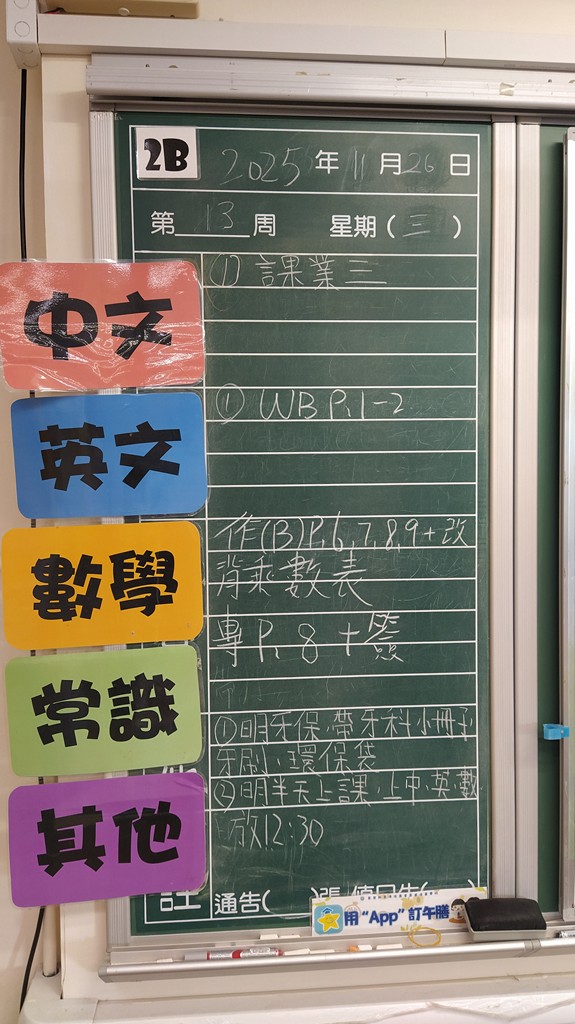 2B
2025年11月26日
第13周 星期(三)
中文
① 課業三
英文
① WB P.1-2
數學
作(B)P.6,7,8,9+改
背乘數表
常識
專P.8+簽
其他
①明牙保,帶牙科小冊子,
牙刷、環保袋
②明半天上課,上中,英,數
放12:30
註 通告( )張 值日生( )
用"App"訂午膳